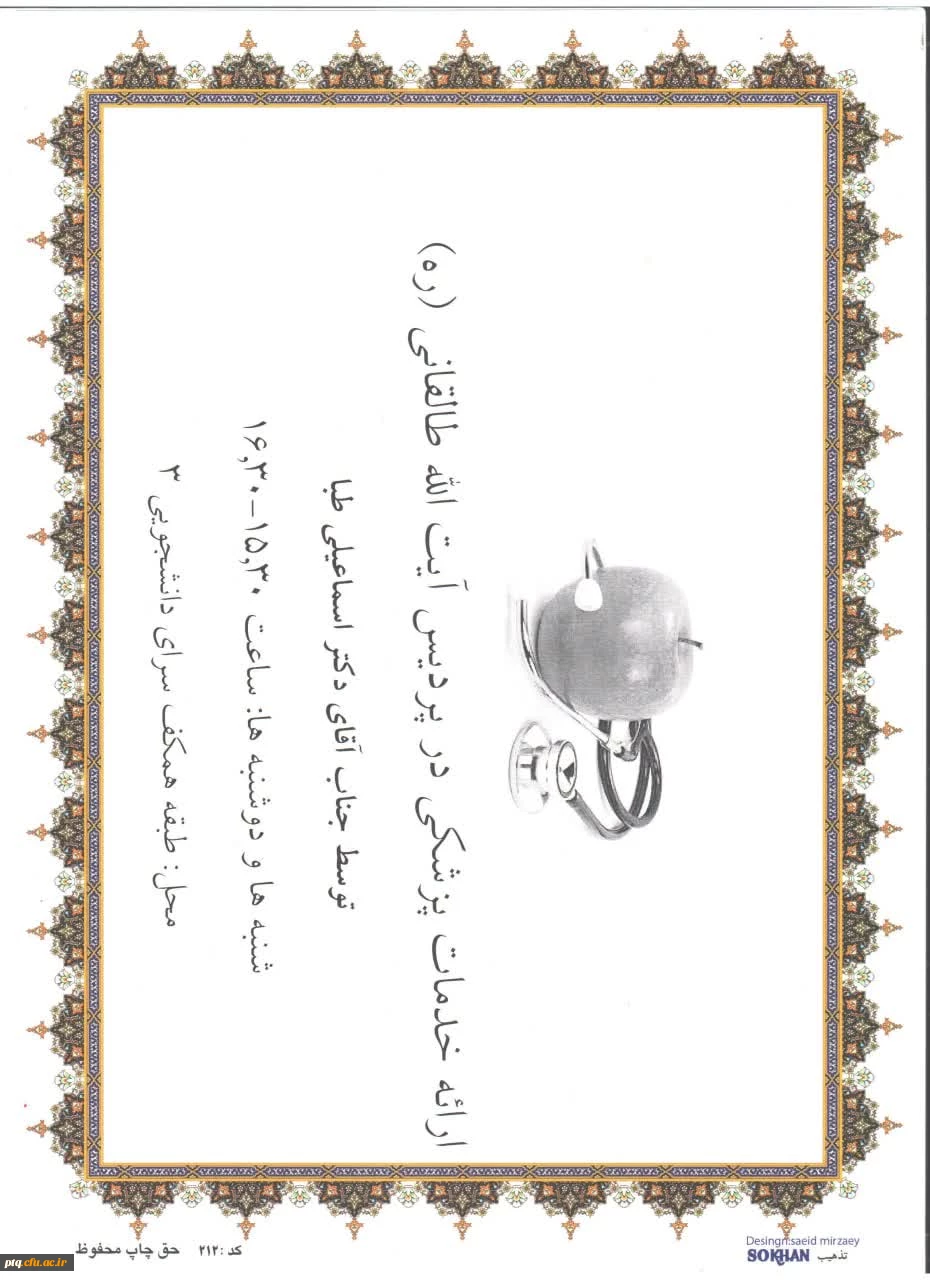 ارائه خدمات پزشکی در پردیس آیت الله طالقانی (ره)
توسط جناب آقای دکتر اسماعیلی طبا
شنبه ها و دوشنبه ها: ساعت ۱۵,۳۰-۱۶,۳۰
محل: طبقه همکف سرای دانشجویی ۳
Desingn:saeid mirzaey
تذهیب SOKHAN
کد :۲۱۲ حق چاپ محفوظ
ptq.cfu.ac.ir